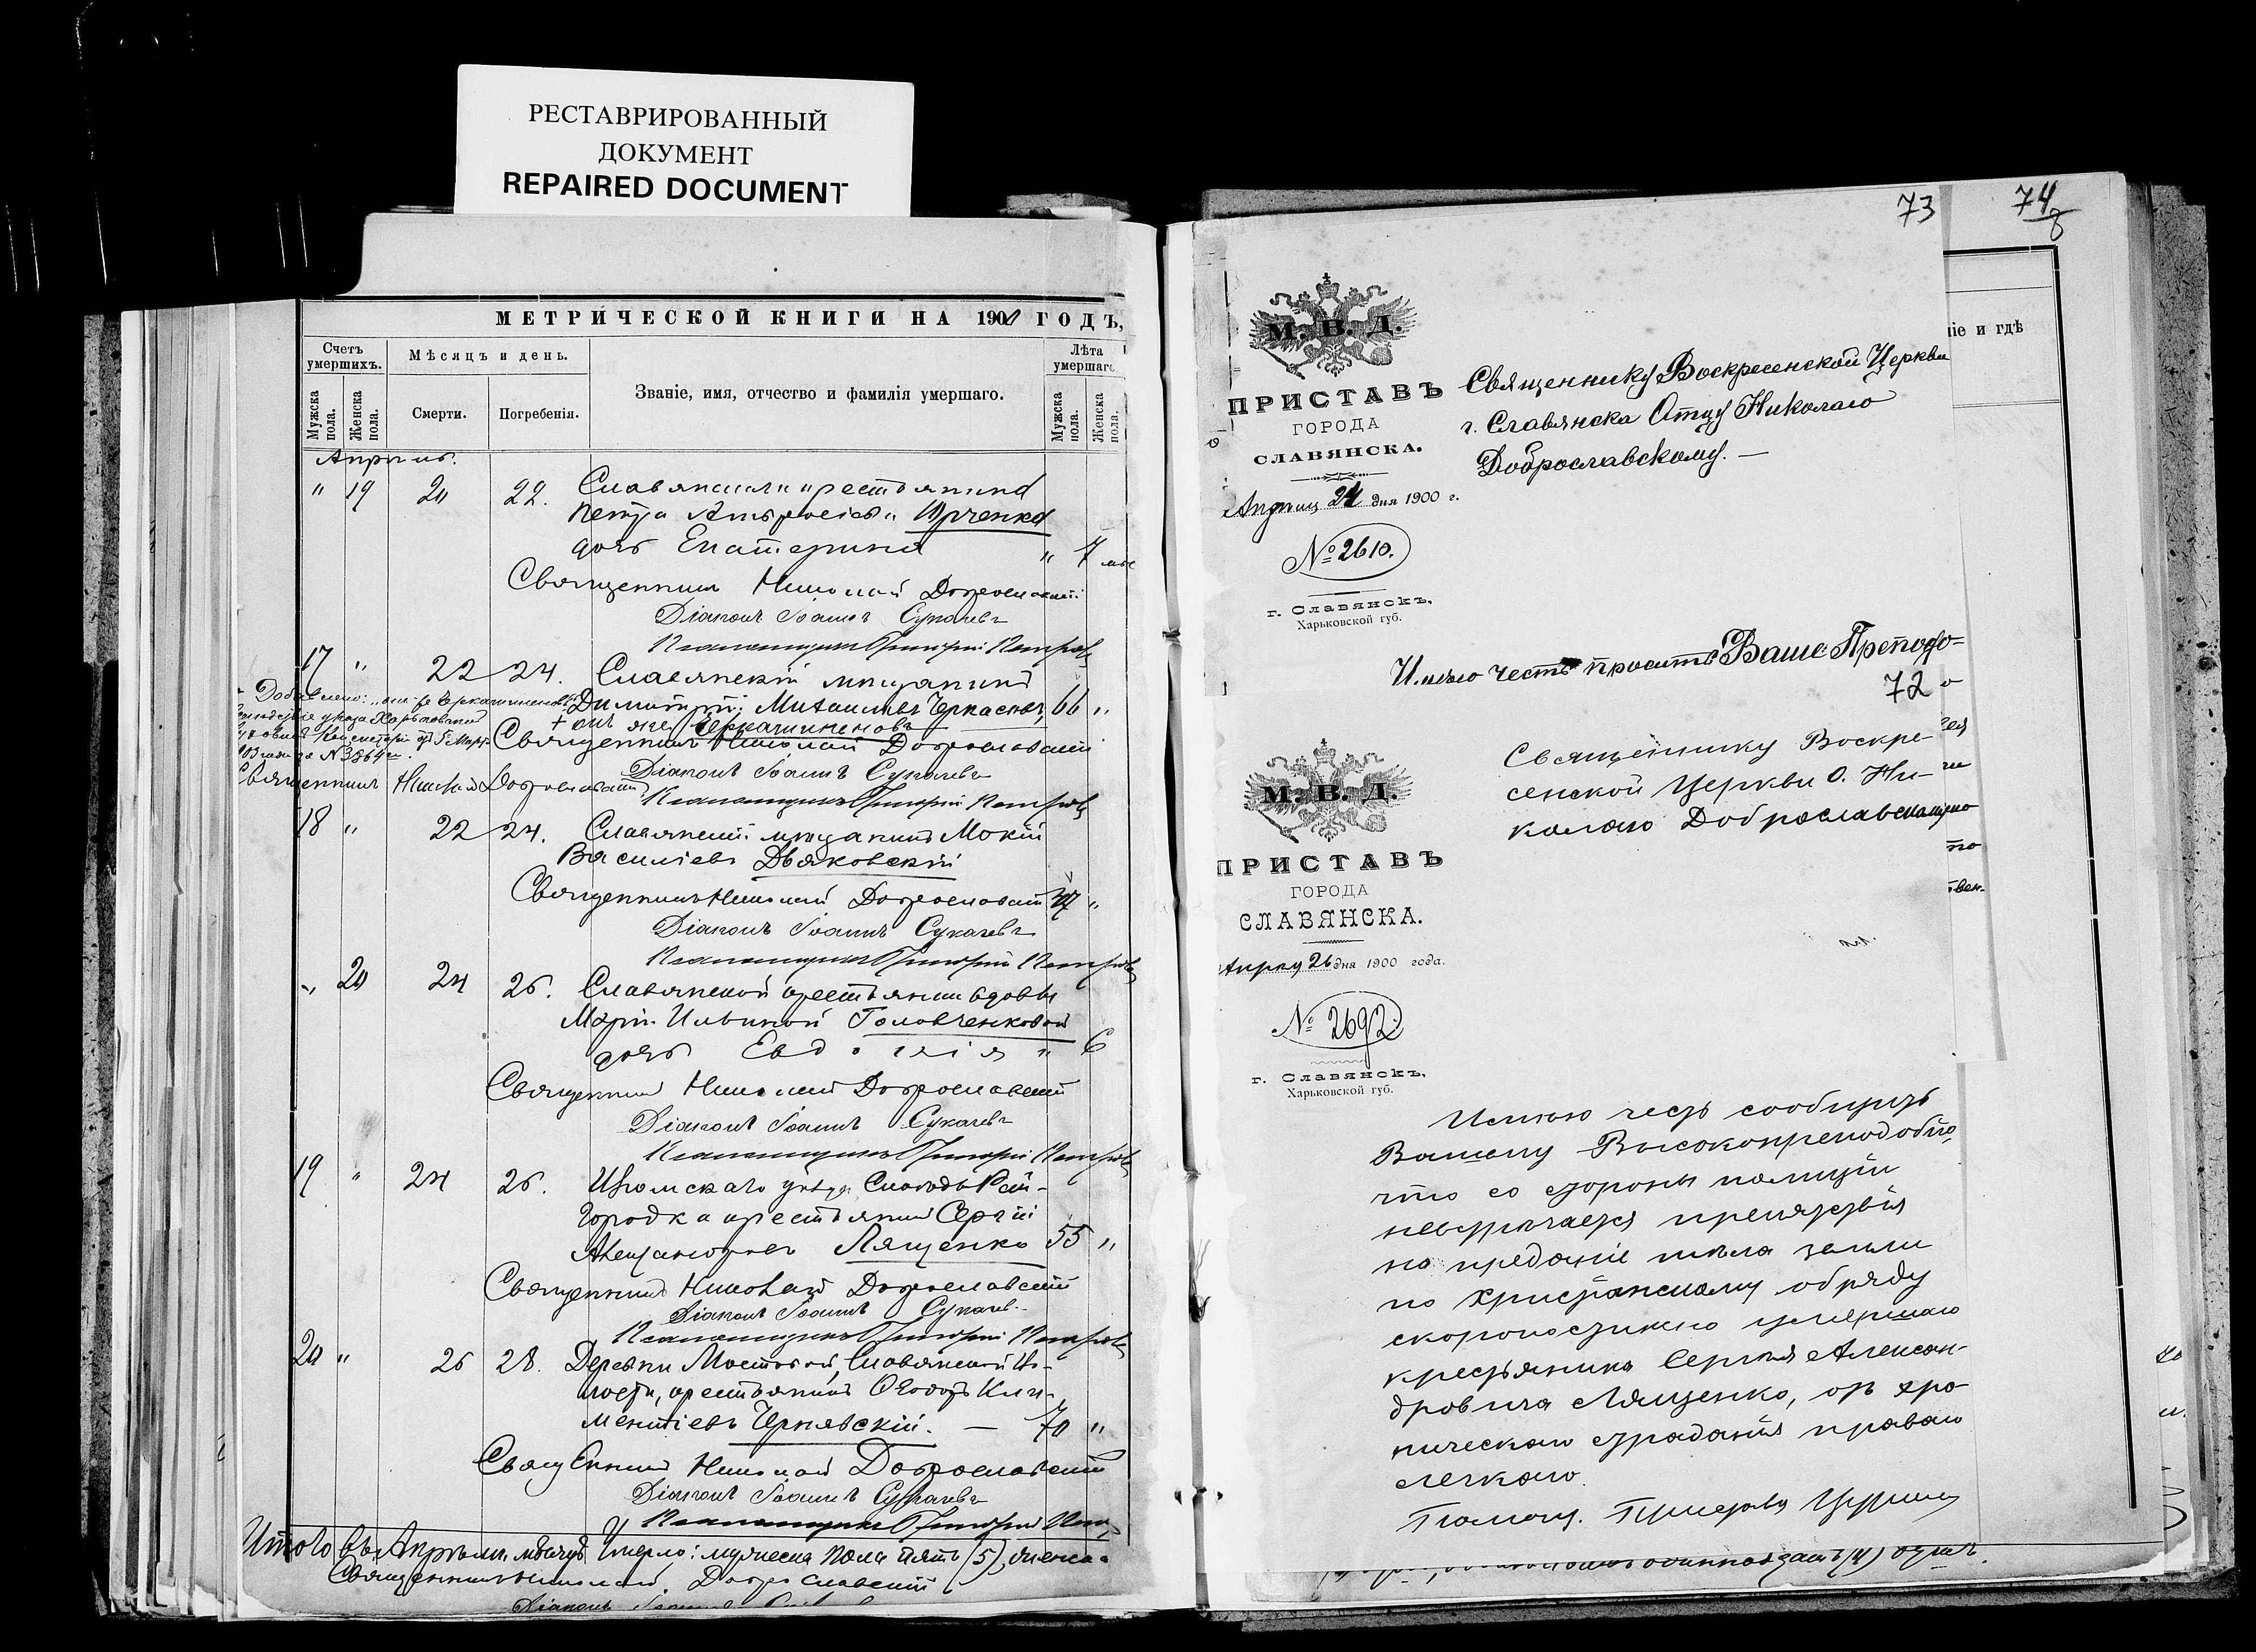 РЕСТАВРИРОВАННЫЙ
ДОКУМЕНТ
REPAIRED DOCUMENT
МЕТРИЧЕСКОЙ КНИГИ НА 1900 ГОДЪ,
Счетъ умершихъ.
Мѣсяцъ и день.
Званіе, имя, отчество и фамилія умершаго.
Лѣта умершаго
Мужска пола.
Женска пола.
Смерти.
Погребенія.
Мужска пола.
Женска пола.
Апрѣль.
" 19 20 22. Славянскаго крестьянина
Петра
дочь Екатерина " 7 мѣс
Священникъ Николай Доброславскій
Діаконъ Іоаннъ Сукачевъ
Григорій Петровъ
17 " 22 24. Славянскій мѣщанинъ
Димитрій Михаиловъ Черкасовъ, 66 "
+ онъ же Черкашининовъ
Священникъ Николай Доброславскій
Діаконъ Іоаннъ Сукачевъ
Григорій Петровъ
Добавлено: "онъ же Черкашининовъ"
указа Харьковской
Консисторіи отъ 5 Марта
за № 3864
Священникъ Николай Доброславскій
18 " 22 24. Славянскій мѣщанинъ Мокій
Васильевъ Дьяковскій
Священникъ Николай Доброславскій "
Діаконъ Іоаннъ Сукачевъ
Григорій Петровъ
" 20 24 26. Славянской крестьянки вдовы
Маріи Ильиной Головченковой
дочь Евдокія " 6
Священникъ Николай Доброславскій
Діаконъ Іоаннъ Сукачевъ
Григорій Петровъ
19 " 24 26. Изюмскаго уѣзда Слободы Рай-
городка крестьянинъ Сергій
Александровъ Лященко 55 "
Священникъ Николай Доброславскій
Діаконъ Іоаннъ Сукачевъ
Григорій Петровъ
20 " 26 28. Деревни Мостовой, Славянской Во-
лости, крестьянинъ Ѳеодотъ Кли-
ментіевъ Чернявскій. — 70 "
Священникъ Николай Доброславскій
Діаконъ Іоаннъ Сукачевъ
Итого въ Апрѣлѣ мѣсяцѣ Умерло: мужеска пола пять (5), женска
Священникъ Николай Доброславскій
Діаконъ
73
74
іе и гдѣ
М. В. Д.
ПРИСТАВЪ
ГОРОДА
СЛАВЯНСКА.
24 дня 1900 г.
№ 2610.
г. Славянскъ,
Харьковской губ.
Священнику Воскресенской Церкви
г. Славянска Отцу Николаю
Доброславскому. —
Имѣю честь просить Ваше Преподо-
72
М. В. Д.
ПРИСТАВЪ
ГОРОДА
СЛАВЯНСКА.
26 дня 1900 года.
№ 2692
г. Славянскъ,
Харьковской губ.
Священнику Воскре-
сенской Церкви О. Ни-
колаю Доброславскому
Имѣю честь сообщить
Вашему Высокопреподобію,
что со стороны полиціи
невстрѣчается препятствія
на преданіе тѣла земли
по христіанскому обряду
скоропостижно умершаго
крестьянина Сергѣя Алексан-
дровича Лященко, отъ хро-
ническаго страданія праваго
легкаго.
Помощ. Пристава